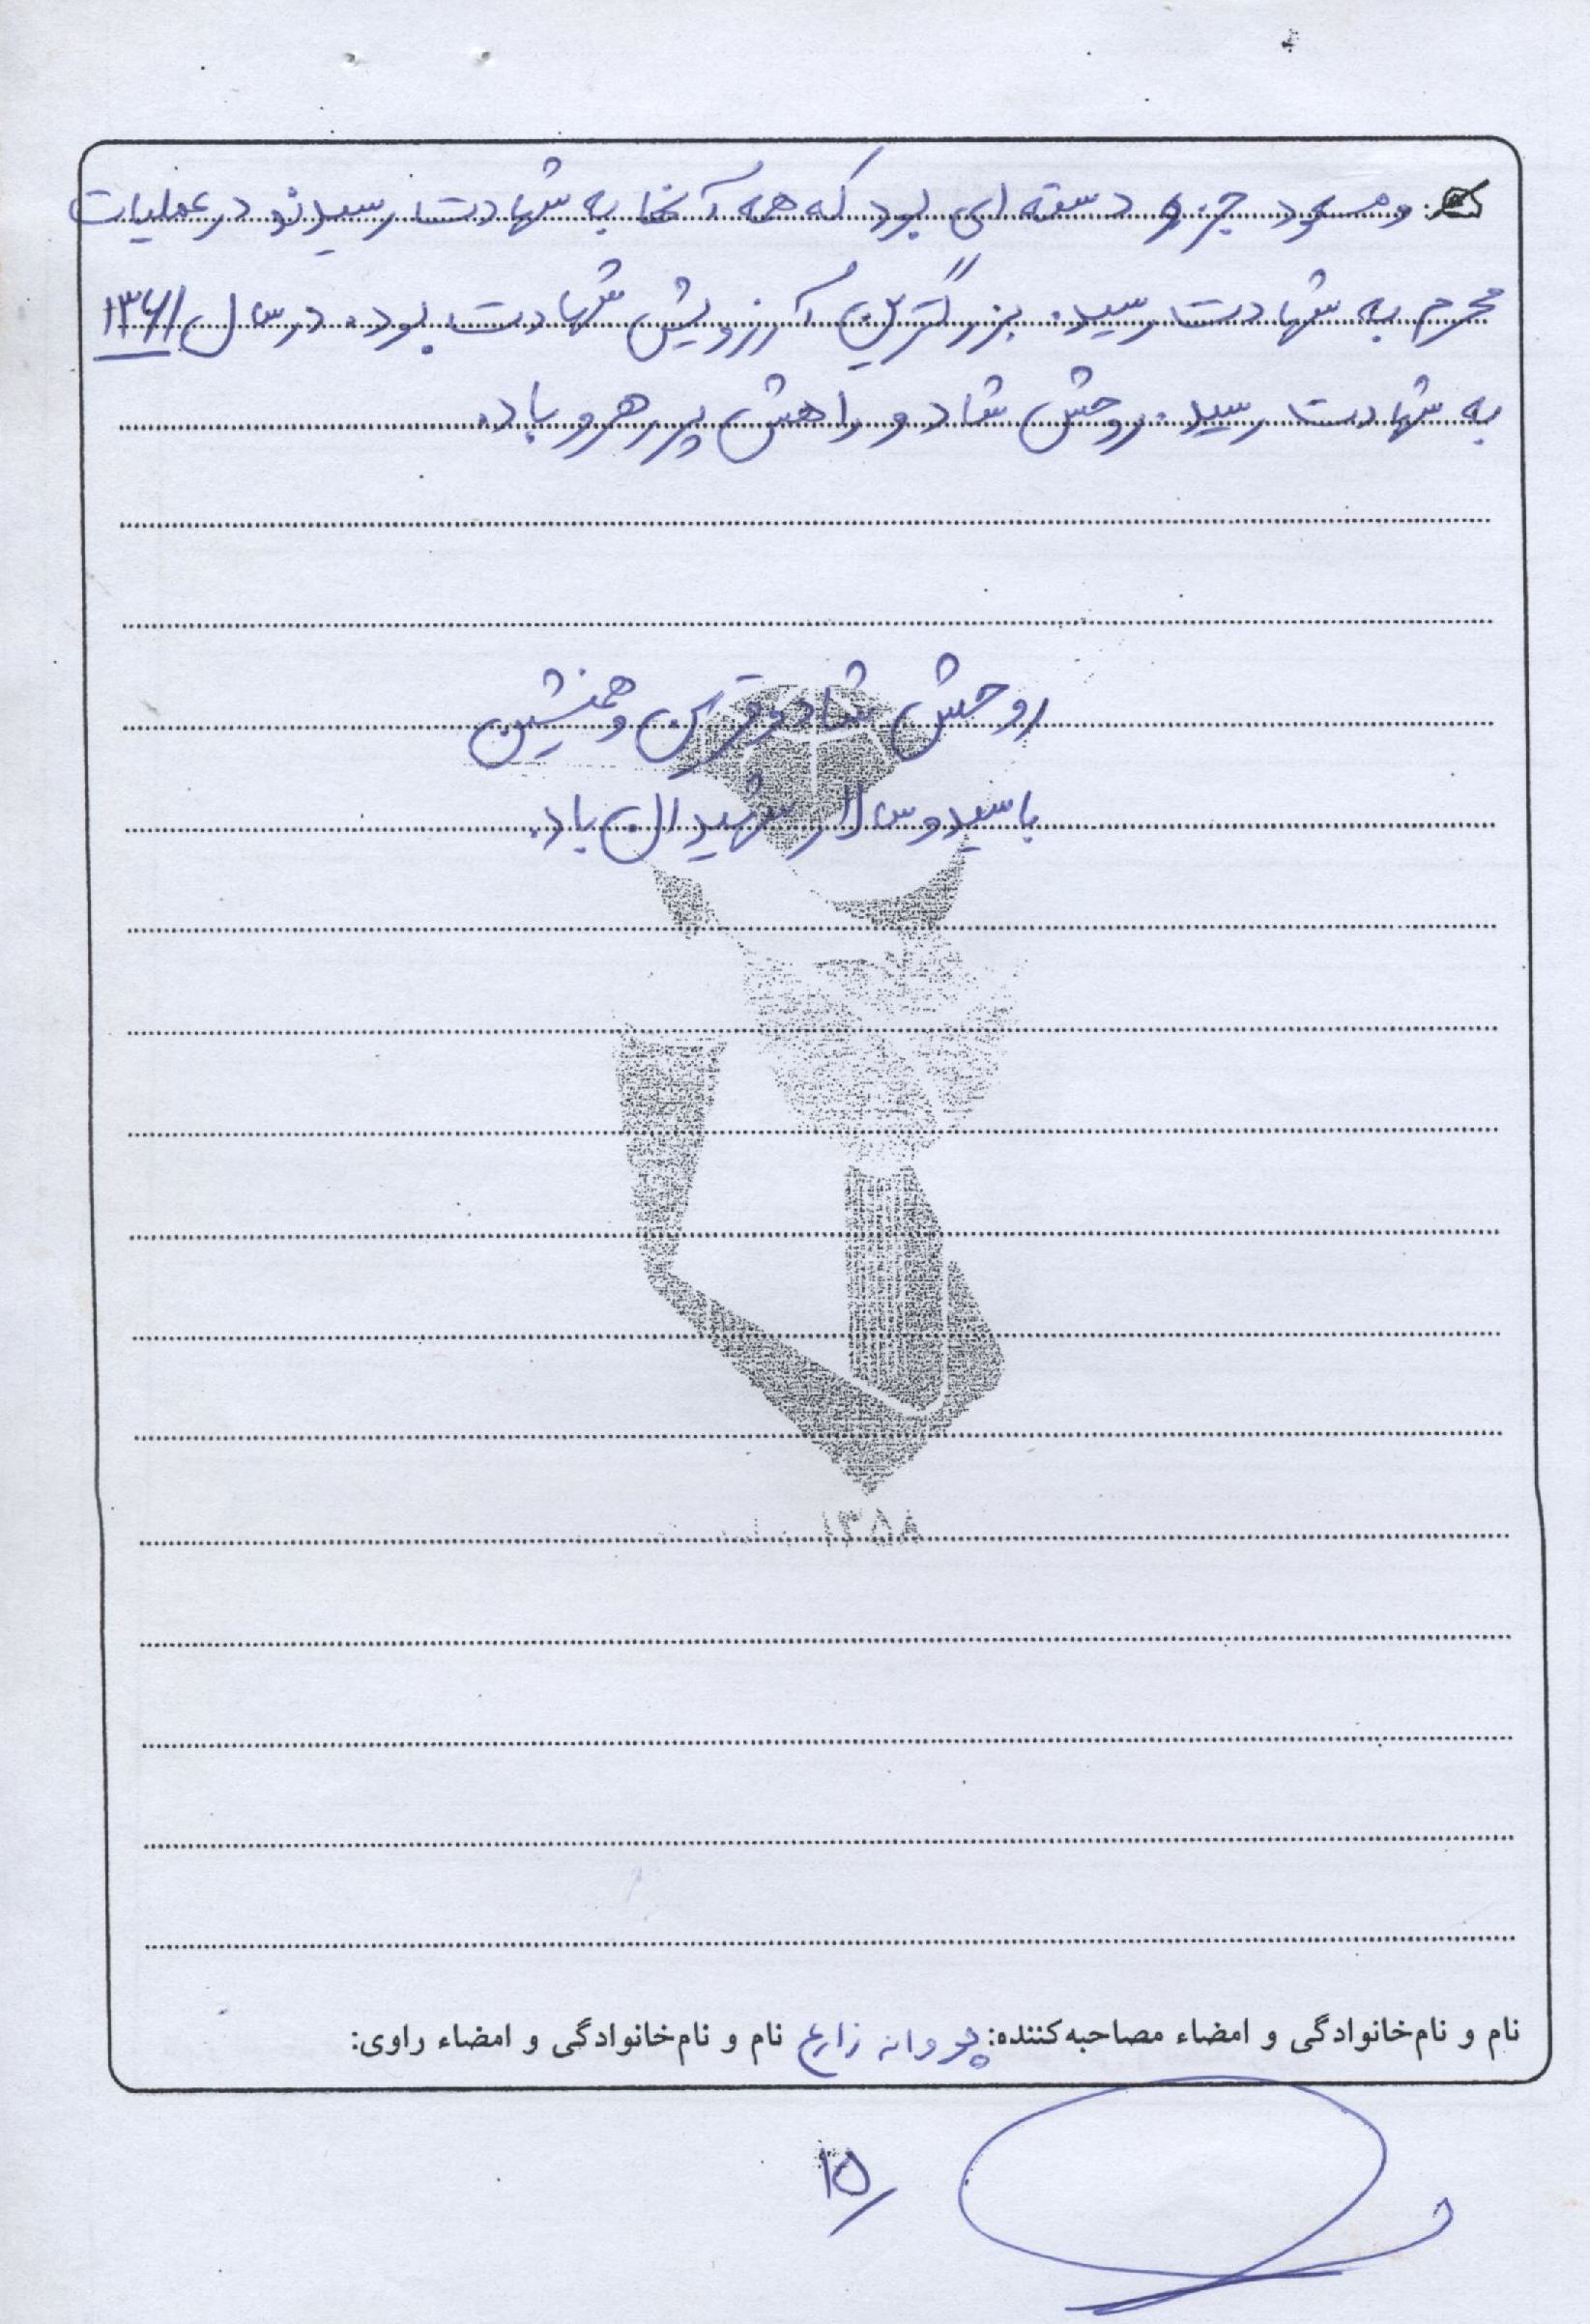 و مسعود جزو دسته ای بود که همه آنها به شهادت رسیدند و در عملیات
محرم به شهادت رسید. بزرگترین آرزویش شهادت بود. در سال ۱۳۶۱
به شهادت رسید. روحش شاد و راهش پر رهرو باد.
روحش شاد و قرین و همنشین
با سید و سالار شهیدان باد.
۱۳۵۸
نام و نام‌خانوادگی و امضاء مصاحبه‌کننده: پروانه زارع نام و نام‌خانوادگی و امضاء راوی:
۱۵